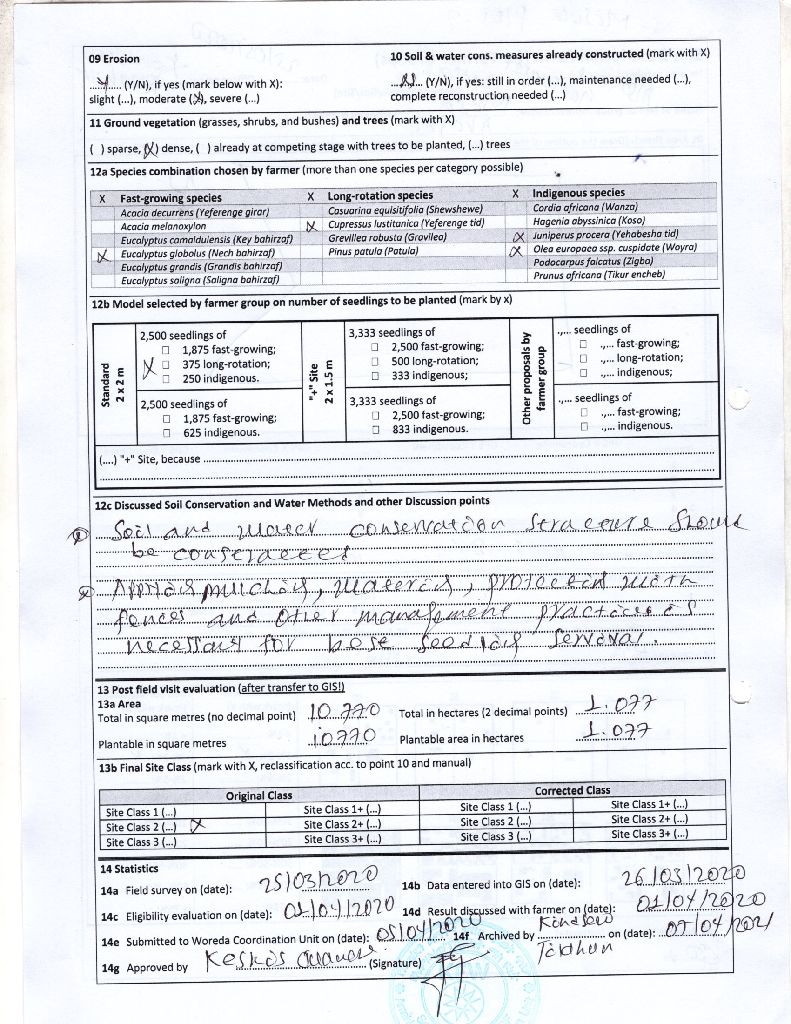 09 Erosion
10 Soil & water cons. measures already constructed (mark with X)
Y (Y/N), if yes (mark below with X):
slight (...), moderate (X), severe (...)
N (Y/N), if yes: still in order (...), maintenance needed (...),
complete reconstruction needed (...)
11 Ground vegetation (grasses, shrubs, and bushes) and trees (mark with X)
( ) sparse, (X) dense, ( ) already at competing stage with trees to be planted, (...) trees
12a Species combination chosen by farmer (more than one species per category possible)
X Fast-growing species X Long-rotation species X Indigenous species
Acacia decurrens (Yeferenge girar) Casuarina equisitifolia (Shewshewe) Cordia africana (Wanza)
Acacia melanoxylon X Cupressus lustitanica (Yeferenge tid) Hagenia abyssinica (Koso)
Eucalyptus camalduiensis (Key bahirzaf) Grevillea robusta (Gravilea) X Juniperus procera (Yehabesha tid)
X Eucalyptus globolus (Nech bahirzaf) Pinus patula (Patula) X Olea europaea ssp. cuspidate (Woyra)
Eucalyptus grandis (Grandis bahirzaf) Podocarpus falcatus (Zigba)
Eucalyptus saligna (Saligna bahirzaf) Prunus africana (Tikur encheb)
12b Model selected by farmer group on number of seedlings to be planted (mark by x)
Standard
2 x 2 m
2,500 seedlings of
☐ 1,875 fast-growing;
X ☐ 375 long-rotation;
☐ 250 indigenous.
2,500 seedlings of
☐ 1,875 fast-growing;
☐ 625 indigenous.
"+" Site
2 x 1.5 m
3,333 seedlings of
☐ 2,500 fast-growing;
☐ 500 long-rotation;
☐ 333 indigenous;
3,333 seedlings of
☐ 2,500 fast-growing;
☐ 833 indigenous.
Other proposals by
farmer group
.,... seedlings of
☐ .,... fast-growing;
☐ .,... long-rotation;
☐ .,... indigenous;
.,... seedlings of
☐ .,... fast-growing;
☐ .,... indigenous.
(....) "+" Site, because
12c Discussed Soil Conservation and Water Methods and other Discussion points
① Soil and water conservation structure should
be constracted
② mulching, watering, protected with
fences and other management practices is
necessary for seedling
13 Post field visit evaluation (after transfer to GIS!)
13a Area
Total in square metres (no decimal point) 10770 Total in hectares (2 decimal points) 1.077
Plantable in square metres 10770 Plantable area in hectares 1.077
13b Final Site Class (mark with X, reclassification acc. to point 10 and manual)
Original Class Corrected Class
Site Class 1 (...) Site Class 1+ (...) Site Class 1 (...) Site Class 1+ (...)
Site Class 2 (...) X Site Class 2+ (...) Site Class 2 (...) Site Class 2+ (...)
Site Class 3 (...) Site Class 3+ (...) Site Class 3 (...) Site Class 3+ (...)
14 Statistics
14a Field survey on (date): 25/03/2020 14b Data entered into GIS on (date): 26/03/2020
14c Eligibility evaluation on (date): 01/04/2020 14d Result discussed with farmer on (date): 01/04/2020
14e Submitted to Woreda Coordination Unit on (date): 05/04/2020 14f Archived by on (date): 07/04/2021
14g Approved by (Signature)